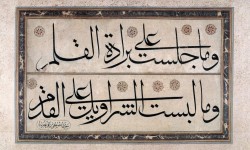 وما جلست على براية القلم
وما لبست السراويل على القدم